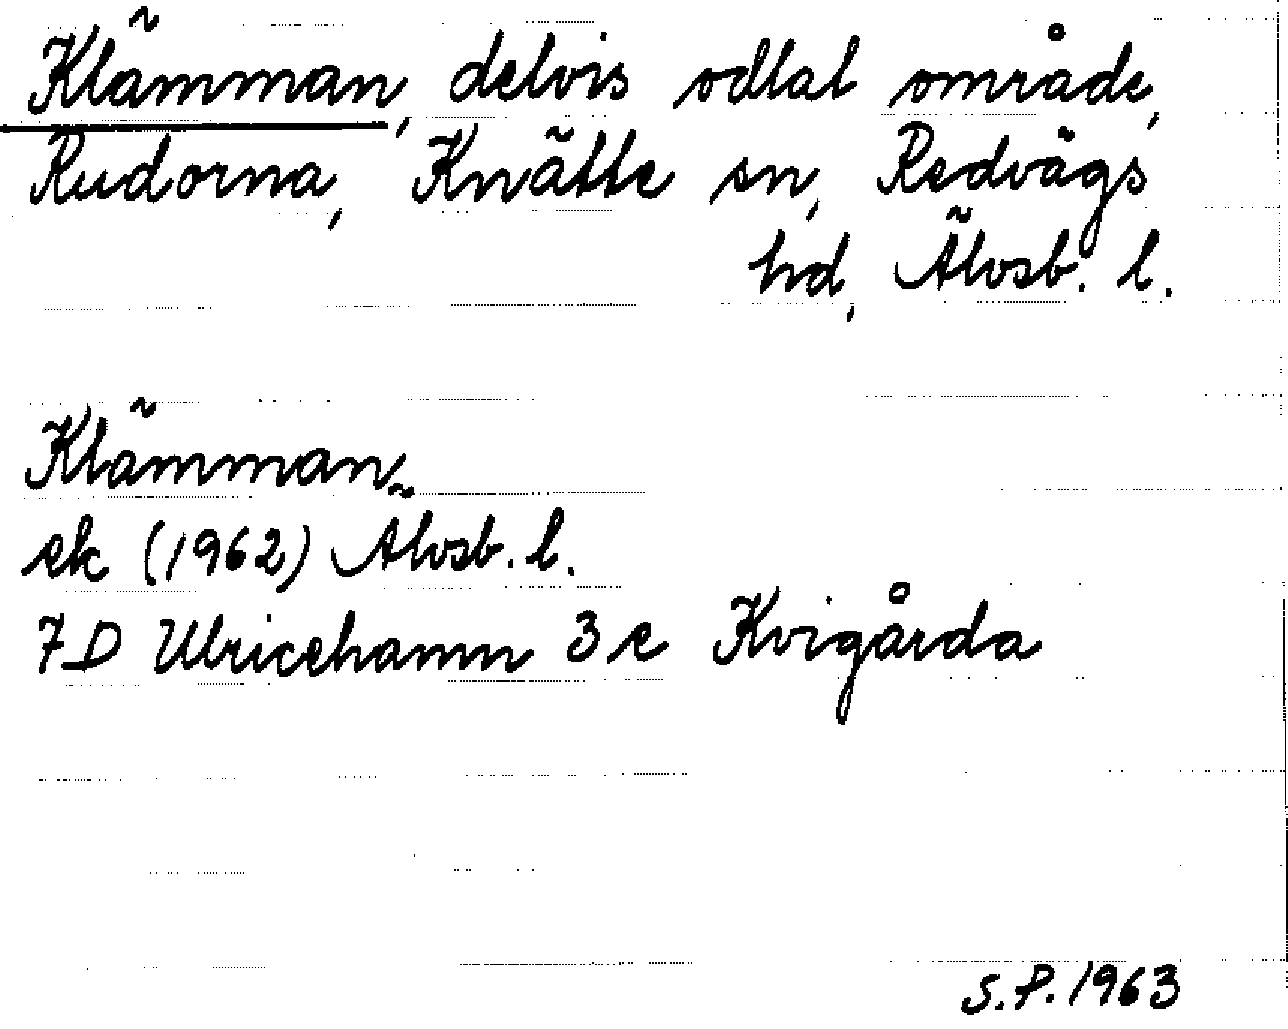 Klämman, delvis odlat område,
Rudorna, Knätte sn, Redvägs
hd, Älvsb. l.
Klämman
ek (1962) Älvsb. l.
7D Ulricehamn 3e Kvigårda
S.P. 1963